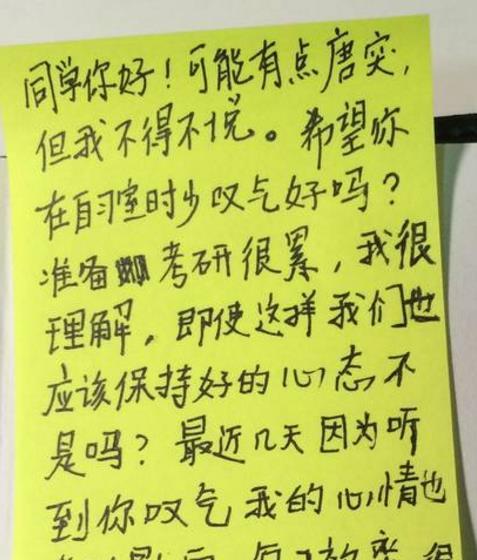 同学你好！可能有点唐突，
但我不得不说。希望你
在自习室时少叹气好吗？
准备考研很累，我很
理解，即使这样我们也
应该保持好的心态不
是吗？最近几天因为听
到你叹气我的心情也